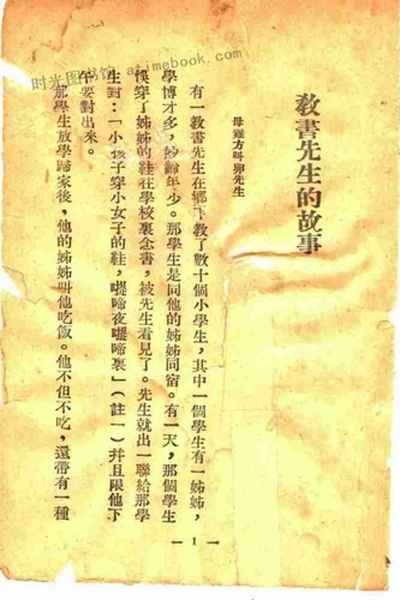 时光图书馆 atimebook.com
教書先生的故事
母雞方叫卵先生
有一教書先生在鄉下教了數十個小學生，其中一個學生有一姊姊，
學博才多，妙齡年少。那學生是同他的姊姊同宿。有一天，那個學生
悞穿了姊姊的鞋在學校裏念書，被先生看見了。先生就出一聯給那學
生對：「小孩子穿小女子的鞋，啼夜啼裏」（註一）幷且限他下
午要對出來。
那學生放學歸家後，他的姊姊叫他吃飯。他不但不吃，還帶有一種
— 1 —